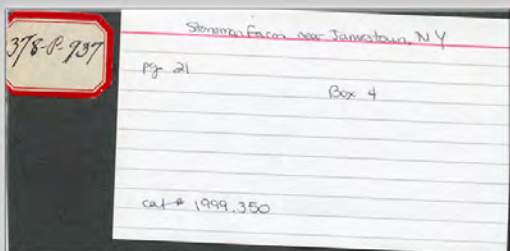 378-P-937
Stoneman Farm near Jamestown, NY
pg 21
Box 4
cat # 1999.350